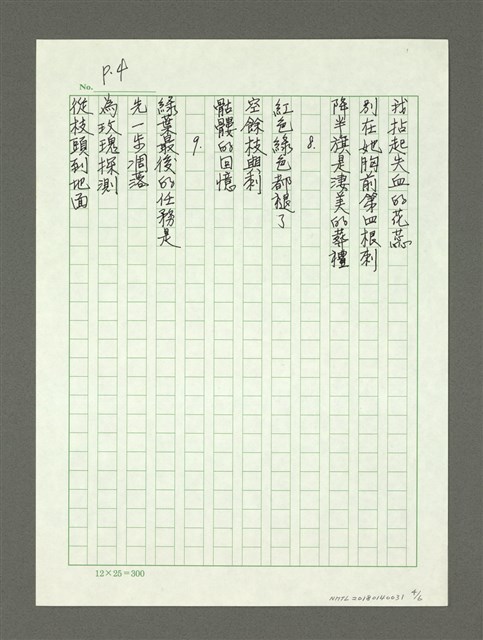 P.4
No.
我拈起失血的花蕊
別在她胸前第四根刺
降半旗是淒美的葬禮
8.
紅色綠色都褪了
空餘枝與刺
骷髏的回憶
9.
綠葉最後的任務是
先一步凋落
為玫瑰探測
從枝頭到地面
12×25=300
NMTL20180140031 4/6